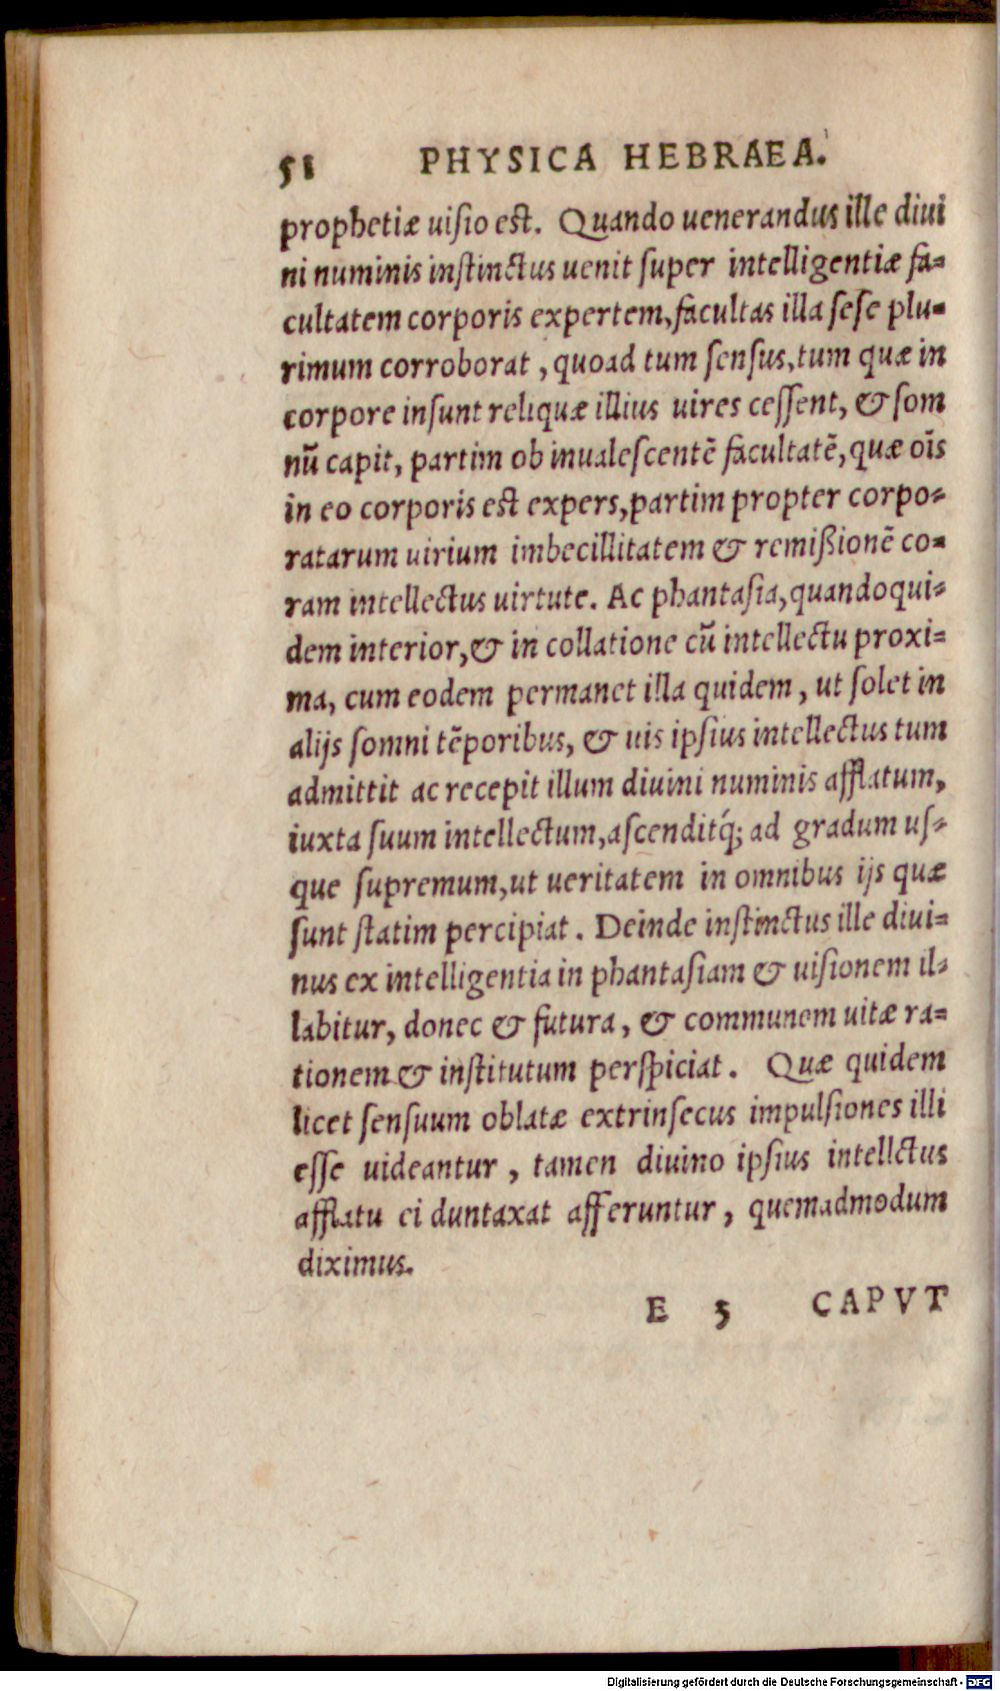 51 PHYSICA HEBRAEA.
prophetiæ uiſio est. Quando uenerandus ille diui
ni numinis inſtinctus uenit ſuper intelligentiæ fa=
cultatem corporis expertem, facultas illa ſeſe plu=
rimum corroborat, quoad tum ſenſus, tum quæ in
corpore inſunt reliquæ illius uires ceſſent, & ſom
nũ capit, partim ob inualeſcentẽ facultatẽ, quæ oĩs
in eo corporis est expers, partim propter corpo=
ratarum uirium imbecillitatem & remißionẽ co=
ram intellectus uirtute. Ac phantaſia, quandoqui=
dem interior, & in collatione cũ intellectu proxi=
ma, cum eodem permanet illa quidem, ut ſolet in
alijs ſomni tẽporibus, & uis ipſius intellectus tum
admittit ac recepit illum diuini numinis afflatum,
iuxta ſuum intellectum, aſcenditq́; ad gradum uſ=
que ſupremum, ut ueritatem in omnibus ijs quæ
ſunt ſtatim percipiat. Deinde inſtinctus ille diui=
nus ex intelligentia in phantaſiam & uiſionem il=
labitur, donec & futura, & communem uitæ ra=
tionem & inſtitutum perſpiciat. Quæ quidem
licet ſenſuum oblatæ extrinſecus impulſiones illi
eſſe uideantur, tamen diuino ipſius intellctus
afflatu ei duntaxat afferuntur, quemadmodum
diximus.
E 5 CAPVT
Digitalisierung gefördert durch die Deutsche Forschungsgemeinschaft - DFG